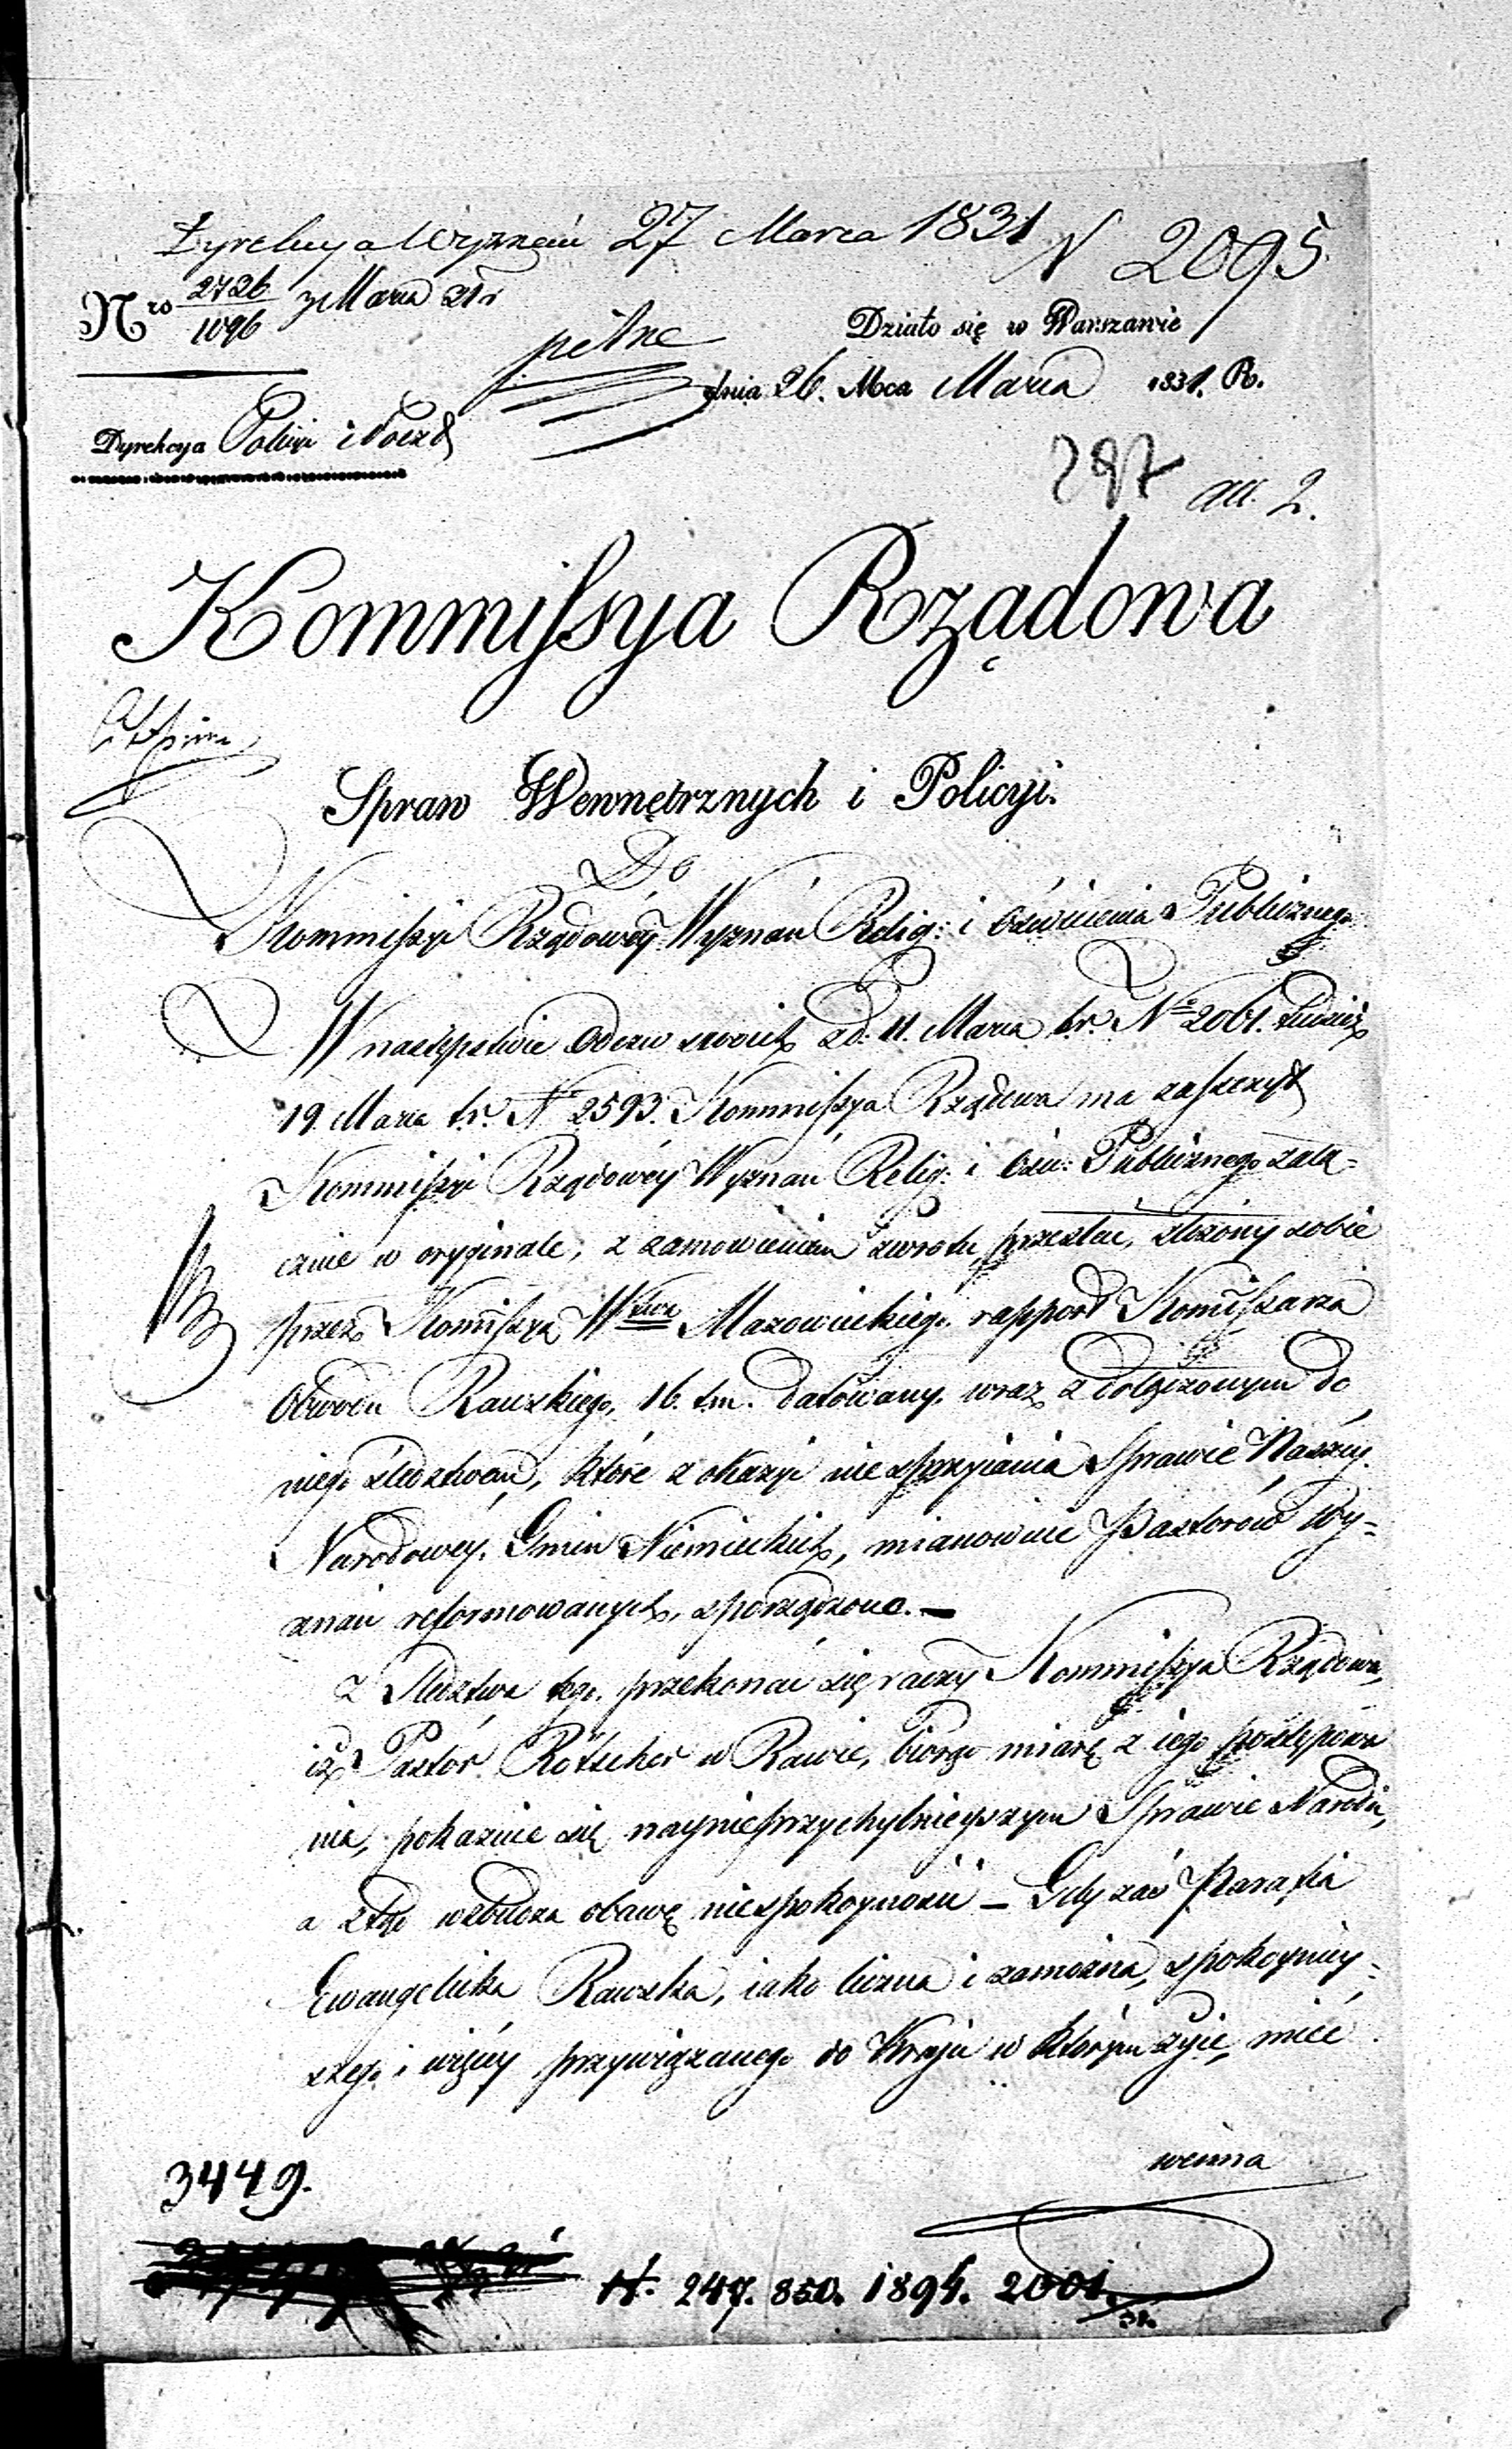 Dyrekcya Wyznań 27 Marca 1831 N 2095.
Nro 2726/1096 z Marca 21 r
pilne
Działo się w Warszawie
dnia 26. Mca Marca 1831. R.
Dyrekcya Policyi i Poczt
297 all. 2.
Kommissya Rządowa
Spraw Wewnętrznych i Policyi.
Do
Kommissyi Rządowéy Wyznań Relig: i Oświecenia Publicznego
W następstwie Odezw swoich z d: 11. Marca b.r. No 2061. tudzież
19. Marca b.r. N 2593. Kommissya Rządowa ma zaszczyt
Kommissyi Rządowéy Wyznań Relig: i Ośw: Publicznego załą=
cznie w oryginale, z zamowieniem zwrotu, przesłać, złożony sobie
przez Komissyą Wztwa Mazowieckiego rapport Komissarza
Obwodu Rawskiego, 16. t.m. datowany, wraz z dołączonym do
niego śledztwem, które z okazyi niesprzyiania Sprawie Naszéy
Narodowéy, Gmin Niemieckich, mianowicie Pastorów Wy=
znań reformowanych, sporządzono. —
Z Sledztwa tego, przekonać się raczy Kommissya Rządowa,
iż Pastór Rötscher w Rawie, biorąc miarę z iego postępowa
nia, pokazuie się naynieprzychylnieyszym Sprawie Narodu,
a ztąd wzbudza obawę niespokoyności — Gdy zaś Parafia
Ewangelicka Rawska, iako liczna i zamożna, spokoyniey=
szego i więcéy przywiązanego do Kraju w którym żyie, mieć
winna
3449.
N. 247. 850. 1894. 2001.